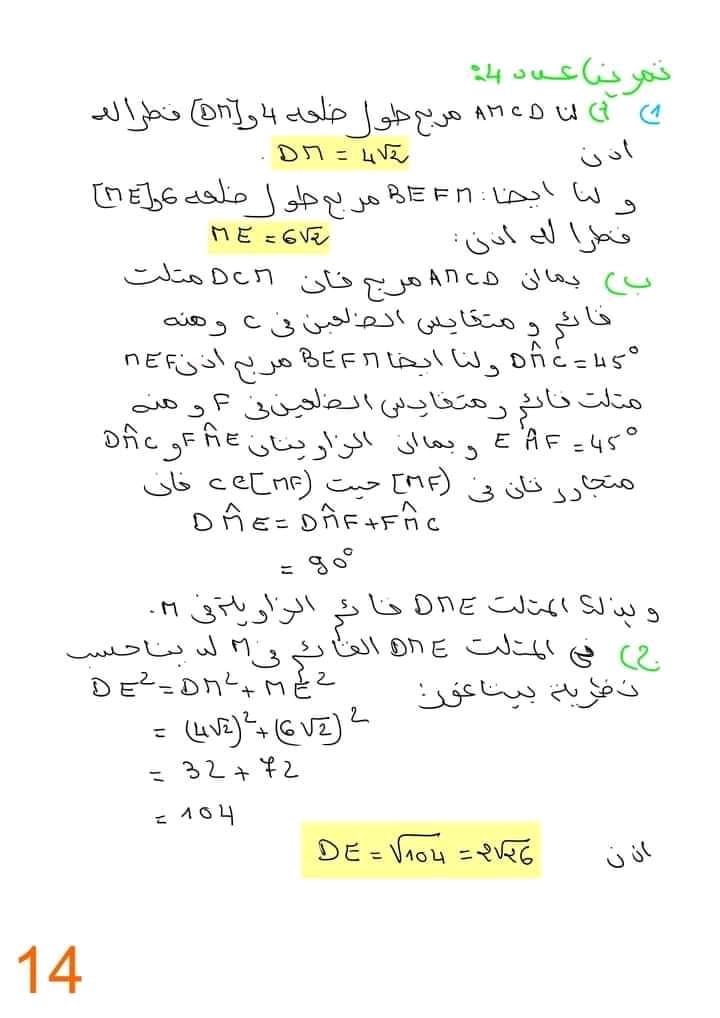 تمرين عدد 4:
1) أ) لنا AMCD مربع طول ضلعه 4 و [DM] قطرا له
اذن DM = 4√2 .
و لنا ايضا : BEFM مربع طول ضلعه 6 و [ME]
قطرا له اذن : ME = 6√2
ب) بما ان AMCD مربع فان DCM مثلث
قائم و متقايس الضلعين في C و منه
DM̂C = 45° و لنا ايضا BEFM مربع اذن MEF
مثلث قائم و متقايس الضلعين في F و منه
EM̂F = 45° و بما ان الزاويتان FM̂E و DM̂C
متجاورتان في [MF) حيث C∈[MF) فان
DM̂E = DM̂F + FM̂C
= 90°
و بذلك المثلث DME قائم الزاوية في M.
2) في المثلث DME القائم في M لدينا حسب
نظرية بيتاغور: DE² = DM² + ME²
= (4√2)² + (6√2)²
= 32 + 72
= 104
اذن DE = √104 = 2√26
14